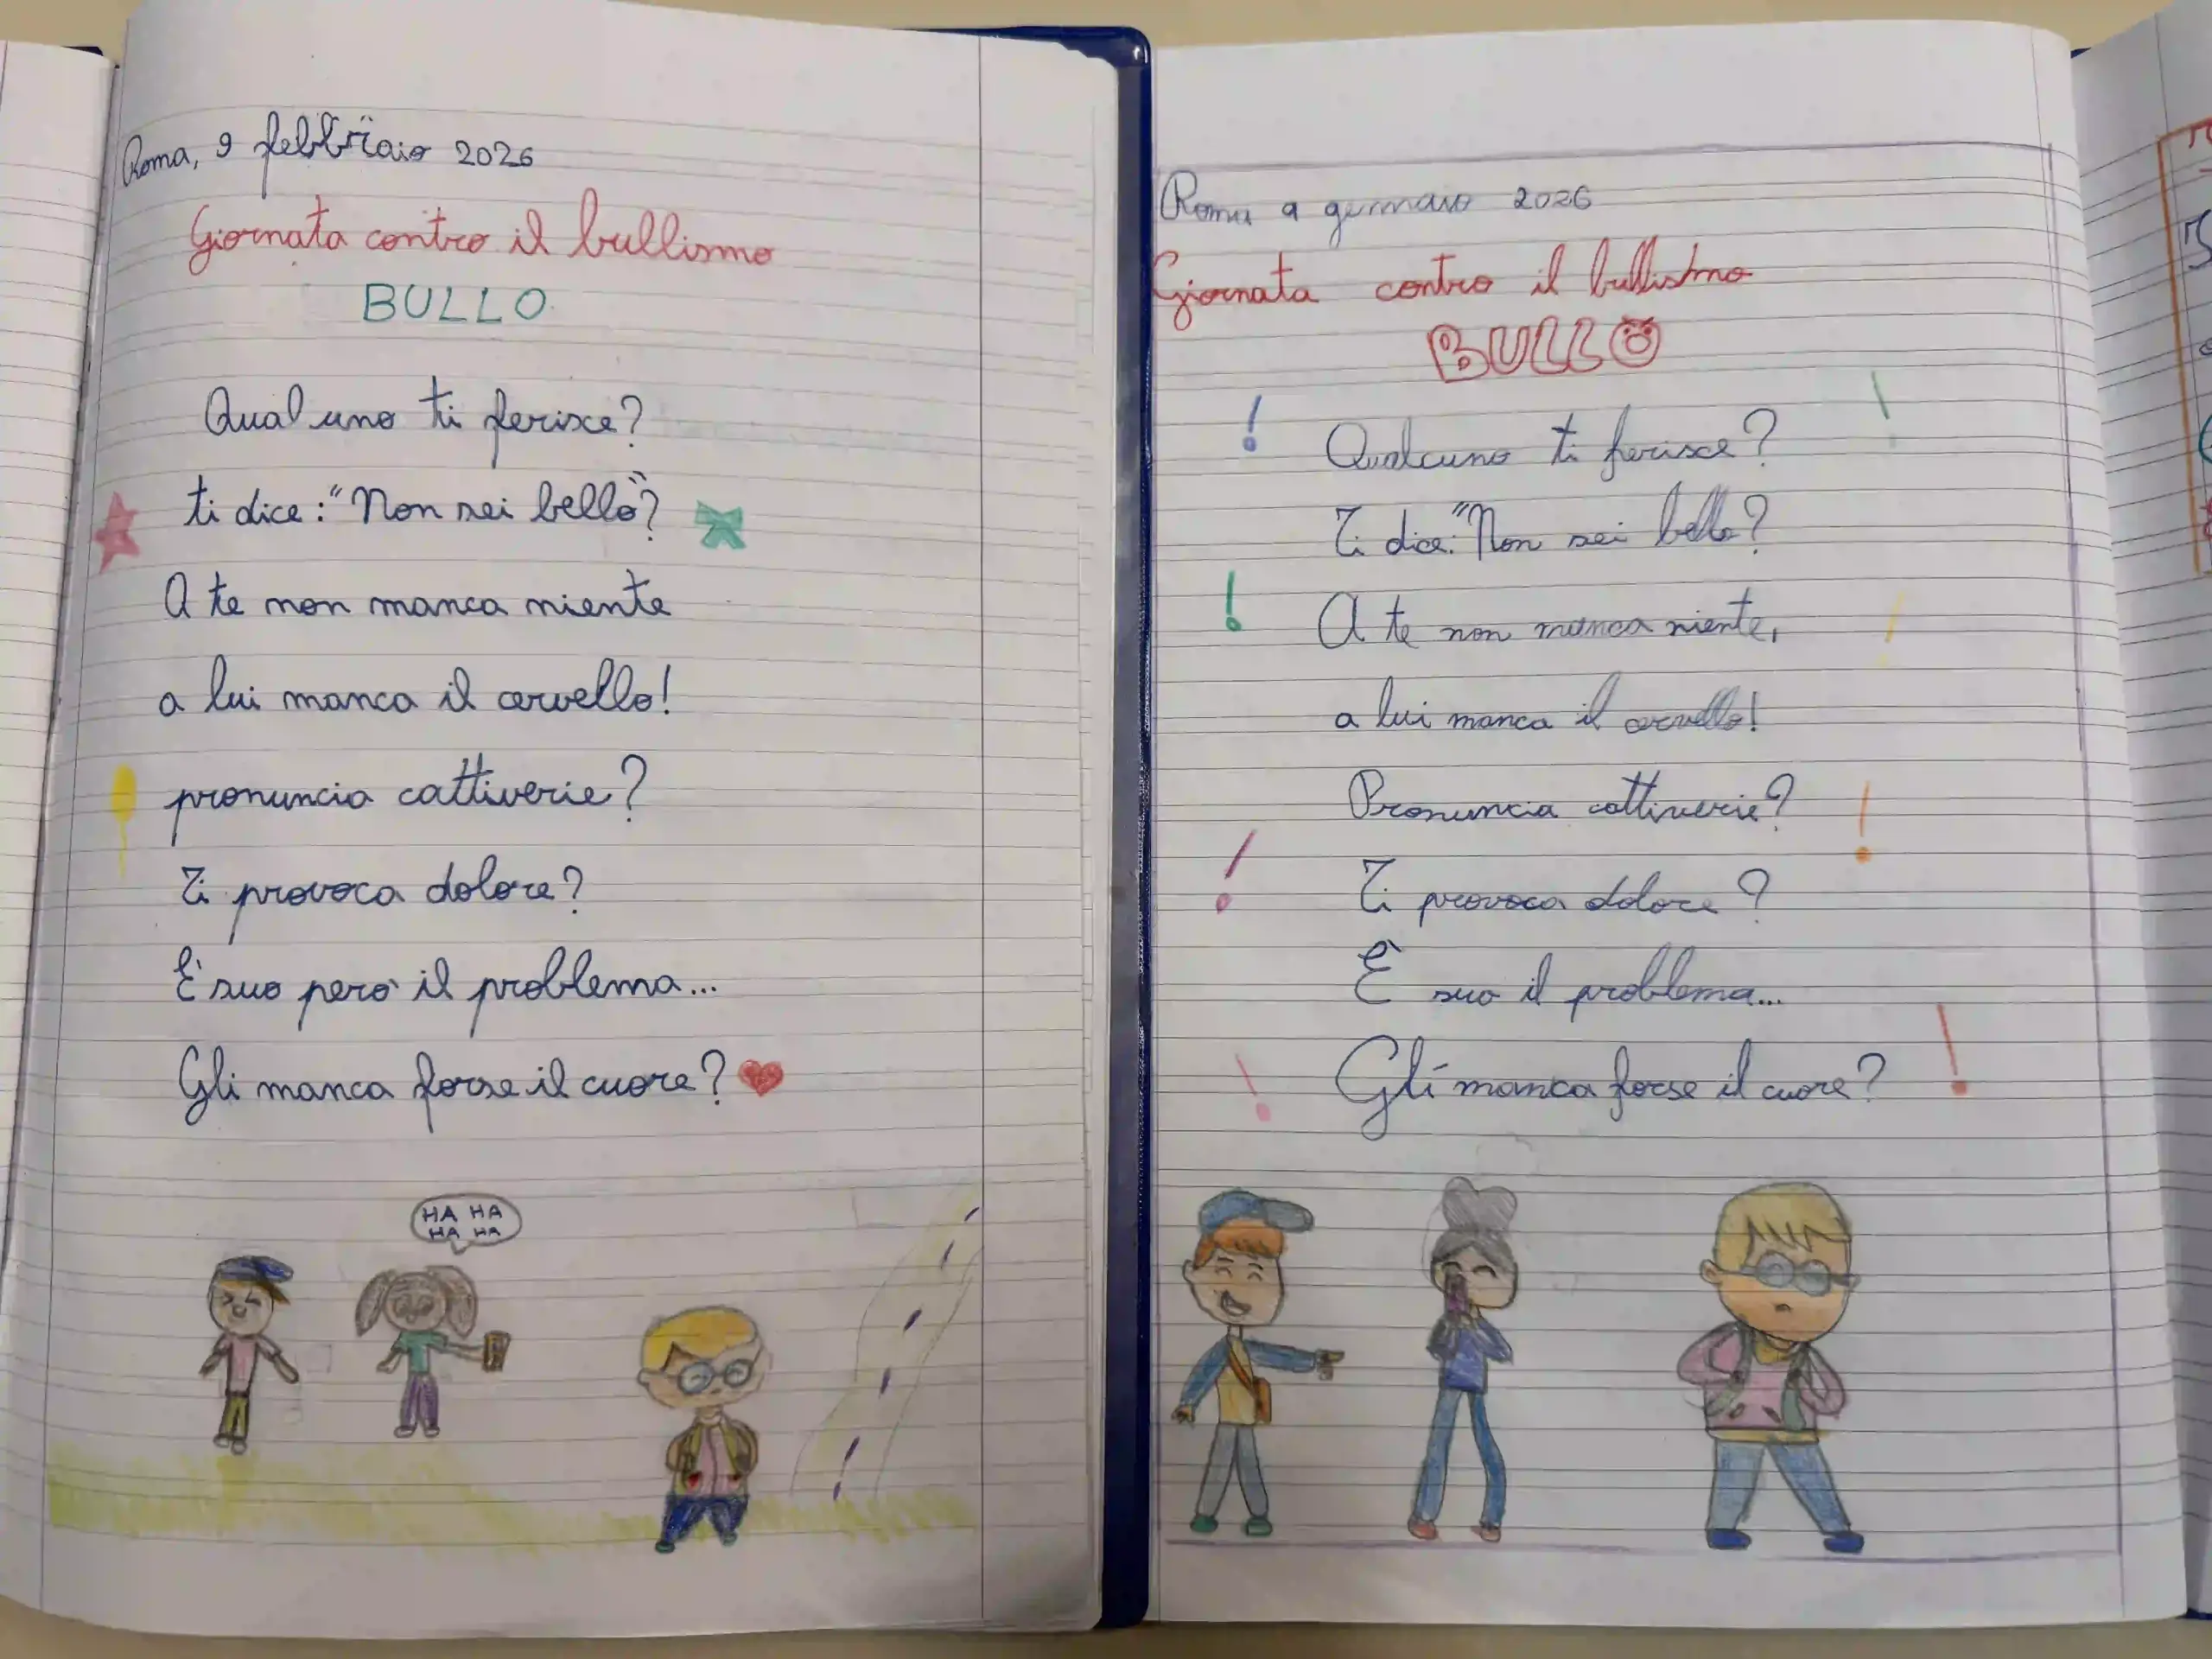 Roma, 9 febbraio 2026
Giornata contro il bullismo
BULLO
Qualuno ti ferisce?
ti dice: "Non sei bello"?
A te non manca niente
a lui manca il cervello!
pronuncia cattiverie?
Ti provoca dolore?
È suo però il problema...
Gli manca forse il cuore?
HA HA
HA HA
Roma 9 gennaio 2026
Giornata contro il bullismo
BULLO
Qualcuno ti ferisce?
Ti dice: "Non sei bello?
A te non manca niente,
a lui manca il cervello!
Pronuncia cattiverie?
Ti provoca dolore?
È suo il problema...
Gli manca forse il cuore?